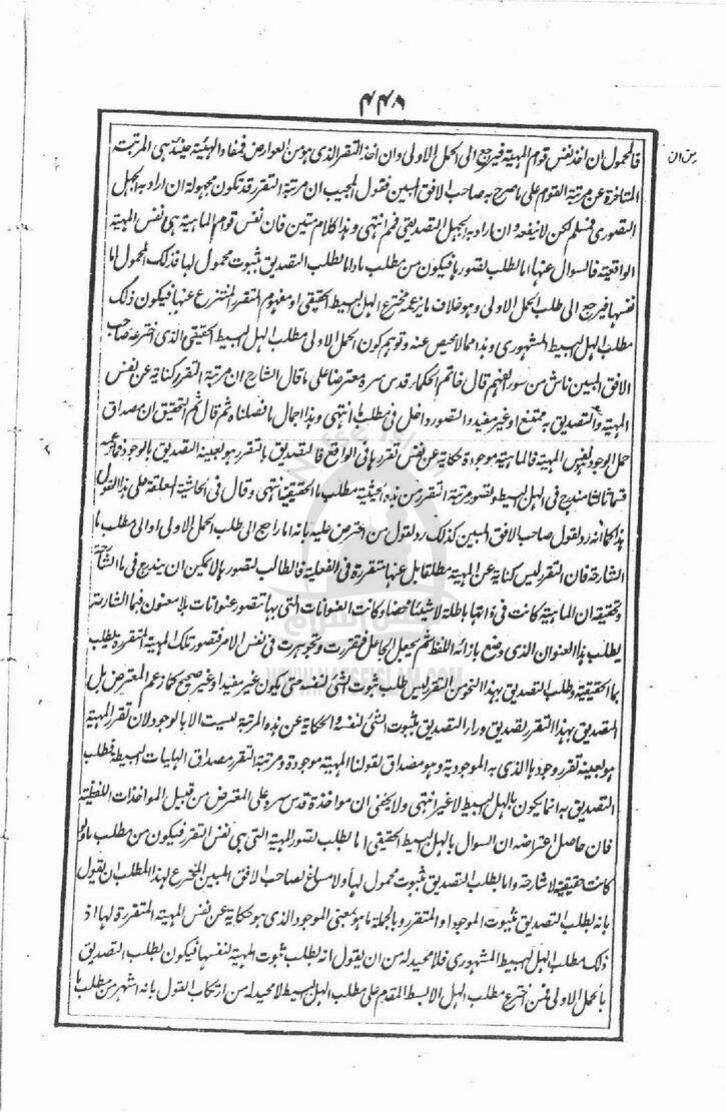 ۴۴۸
فالمحمول ان اخذ نفس قوام المهية فيرجع الى الحمل الاولى وان اخذ التقرر الذى هو من العوارض فمفاد الهلية حينئذ هى المرتبة
المتاخرة عن مرتبة القوام على ما صرح به صاحب الافق المبين فقول المجيب ان مرتبة التقرر قد تكون مجهولة ان اراد به الجهل
التصورى فمسلم لكن لا ينفعه وان اراد به الجهل التصديقى فمم انتهى وهذا كلام متين فان نفس قوام الماهية هى نفس المهية
الواقعية فالسوال عنها اما لطلب تصورها فيكون من مطلب ما واما لطلب التصديق بثبوت محمول لها فذلك المحمول اما
نفسها فيرجع الى طلب الحمل الاولى وهو خلاف ما يزعمه مخترع الهل البسيط الحقيقى او مفهوم التقرر المنتزع عنها فيكون ذلك
مطلب الهل البسيط المشهورى وهذا مما لا محيص عنه وتوهم كون الحمل الاولى مطلب الهل البسيط الحقيقى الذى اخترعه صاحب
الافق المبين ناش من سوء الفهم قال خاتم الحكماء قدس سره معترضا على ما قال الشارح ان مرتبة التقرر كناية عن نفس
المهية والتصديق به ممتنع او غير مفيد والتصور داخل فى مطلب ما انتهى وهذا اجمال ما فصلناه ثم قال ثم التحقيق ان مصداق
حمل الوجود نفس المهية فالماهية موجودة حكاية عن نفس تقررها فى الواقع فالتصديق بالتقرر هو بعينه التصديق بالوجود فما زعمه
قسما ثالثا مندرج فى الهل البسيط وتصور مرتبة التقرر من هذه الحيثية مطلب ما الحقيقية انتهى وقال فى الحاشية المعلقة على هذا القول
هذا كما انه رد لقول صاحب الافق المبين كذلك رد لقول من اعترض عليه بانه اما راجع الى طلب الحمل الاولى او الى مطلب ما
الشارحة فان التقرر ليس كناية عن المهية مطلقا بل عنها متقررة فى الفعلية فالطالب لتصورها لا يمكن ان يندرج فى ما الشارحة
وتحقيقه ان الماهية كانت فى ذاتها باطلة لا شيئا محضا وكانت العنوانات التى بها تتصور عنوانات بلا معنون فما الشارحة
يطلب بها العنوان الذى وضع بازائه اللفظ ثم بجعل الجاعل تقررت وتجوهرت فى نفس الامر فتصور تلك المهية المتقررة يطلب
بما الحقيقية وطلب التصديق بهذا النحو من التقرر ليس طلب ثبوت الشئ لنفسه حتى يكون غير مفيد او غير صحيح كما زعم المعترض بل
التصديق بهذا التقرر تصديق وراء التصديق بثبوت الشئ لنفسه والحكاية عن هذه المرتبة ليست الا بالوجود لان تقرر المهية
هو بعينه تقرر وجودها الذى به الموجودية وهو مصداق لقولنا المهية موجودة ومرتبة التقرر مصداق الهليات البسيطة فطلب
التصديق به انما يكون بالهل البسيط لا غير انتهى ولا يخفى ان مواخذة قدس سره على المعترض من قبيل المواخذات اللفظية
فان حاصل اعتراضه ان السوال بالهل البسيط الحقيقى اما يطلب تصور المهية التى هى نفس التقرر فيكون من مطلب ما
كانت حقيقية او شارحة واما يطلب التصديق بثبوت محمول لها ولا مساغ لصاحب الافق المبين المخترع لهذا المطلب ان يقول
بانه يطلب التصديق بثبوت الموجود او المتقرر وبالجملة ما هو بمعنى الموجود الذى هو حكاية عن نفس المهية المتقررة لها اذ
ذلك مطلب الهل البسيط المشهورى فلا محيد له من ان يقول انه يطلب ثبوت المهية لنفسها فيكون يطلب التصديق
بالحمل الاولى فمن اخترع مطلب الهل الابسط المقدم على مطلب الهل البسيط لا محيد له من ارتكاب القول بانه اشهر من مطلب ما